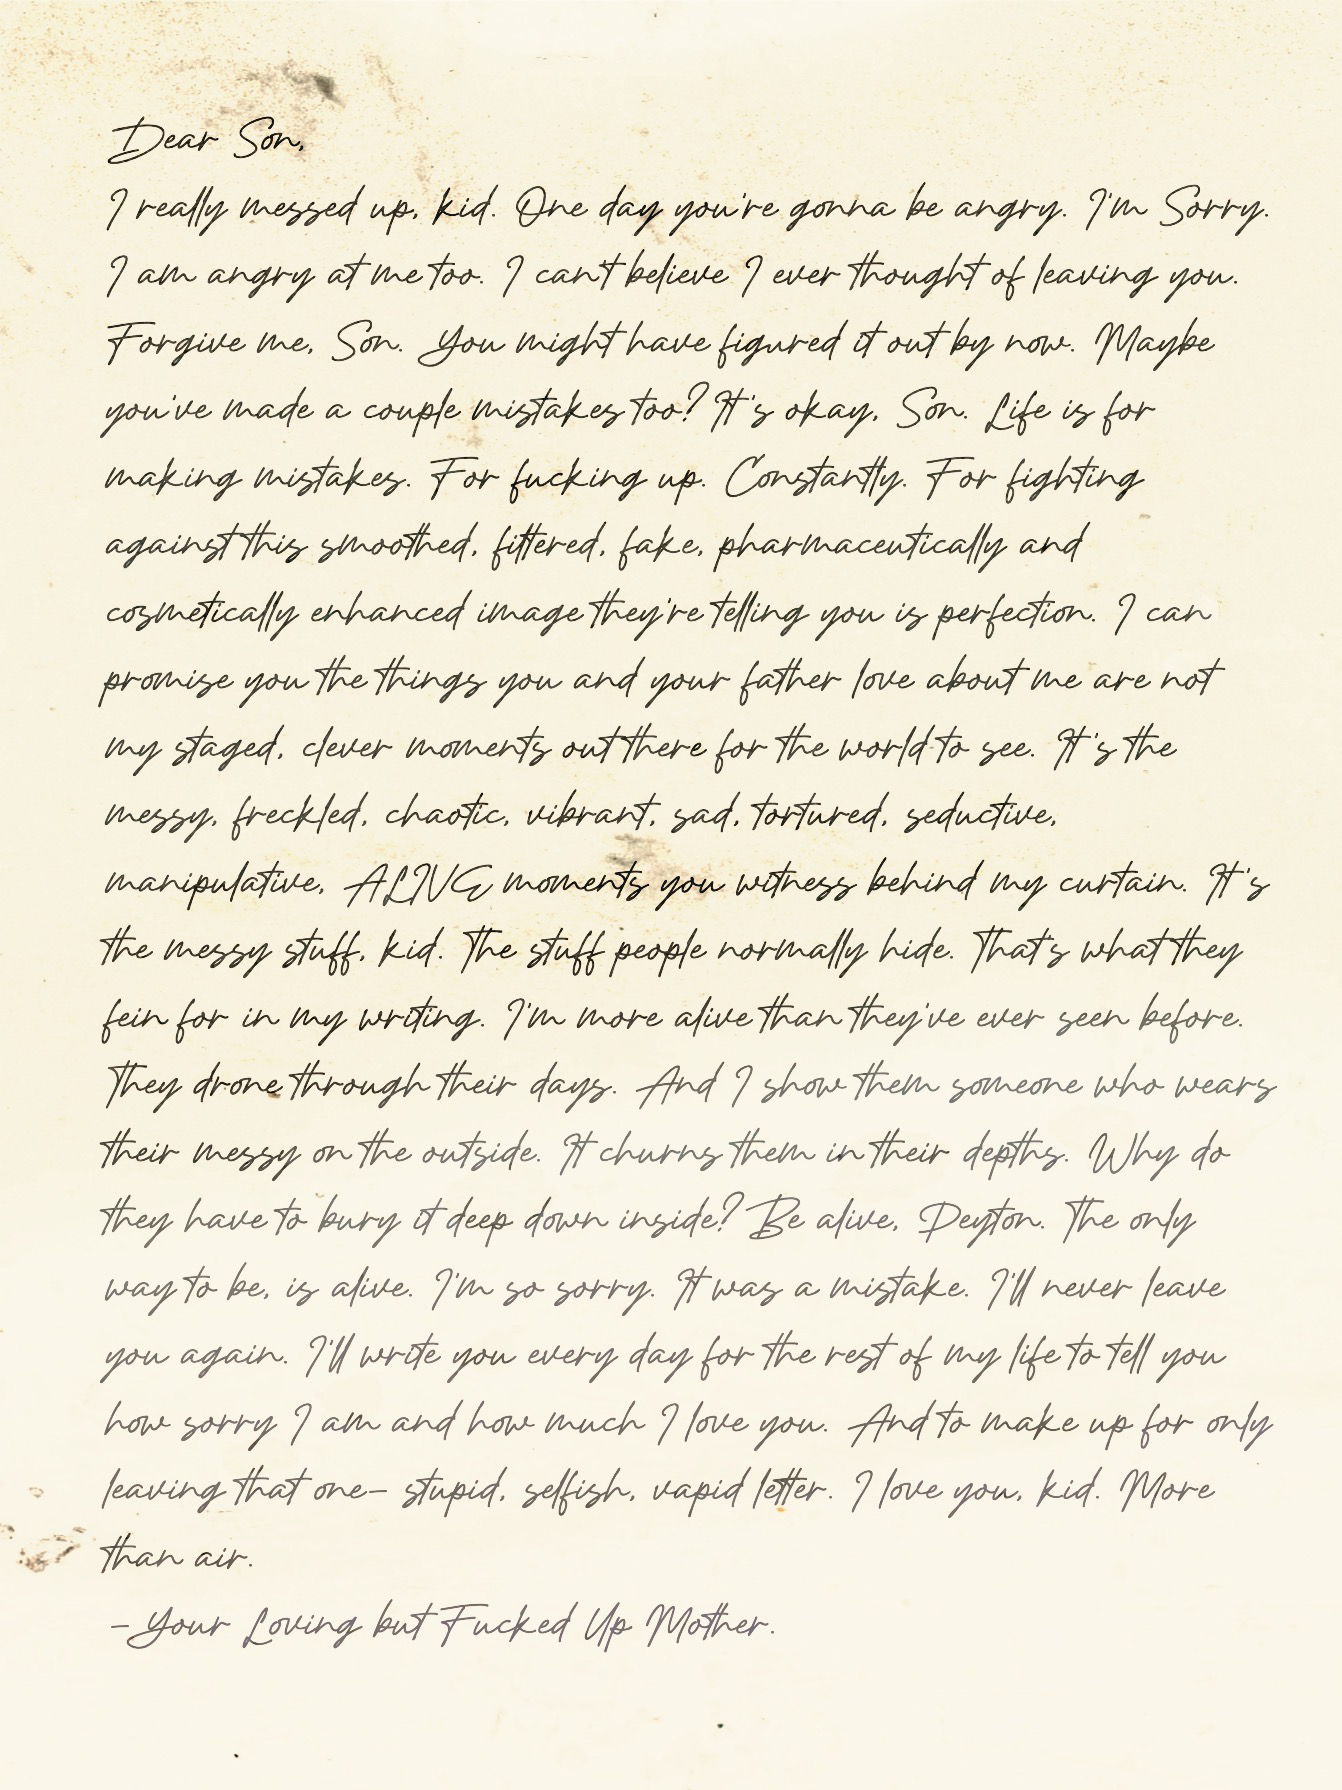 Dear Son,
I really messed up, kid. One day you're gonna be angry. I'm Sorry.
I am angry at me too. I can't believe I ever thought of leaving you.
Forgive me, Son. You might have figured it out by now. Maybe
you've made a couple mistakes too? It's okay, Son. Life is for
making mistakes. For fucking up. Constantly. For fighting
against this smoothed, filtered, fake, pharmaceutically and
cosmetically enhanced image they're telling you is perfection. I can
promise you the things you and your father love about me are not
my staged, clever moments out there for the world to see. It's the
messy, freckled, chaotic, vibrant, sad, tortured, seductive,
manipulative, ALIVE moments you witness behind my curtain. It's
the messy stuff, kid. The stuff people normally hide. That's what they
fein for in my writing. I'm more alive than they've ever seen before.
They drone through their days. And I show them someone who wears
their messy on the outside. It churns them in their depths. Why do
they have to bury it deep down inside? Be alive, Deyton. The only
way to be, is alive. I'm so sorry. It was a mistake. I'll never leave
you again. I'll write you every day for the rest of my life to tell you
how sorry I am and how much I love you. And to make up for only
leaving that one- stupid, selfish, vapid letter. I love you, kid. More
than air.
-Your Loving but Fucked Up Mother.